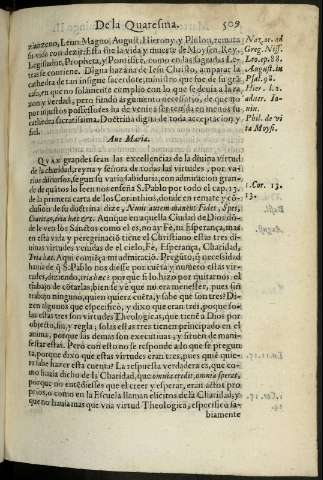 De la Quaresma. 509
zianzeno, Leon Magno, August. Hierony. y Philon, remata
su vida con dezir: Esta fue la vida y muerte de Moysen, Rey,
Legislador, Propheta, y Pontifice, como en las sagradas Le-
tras se contiene. Digna hazaña de Iesu Christo, amparar la
cathedra de tan insigne sacerdote, ministro que fue de su gra
cado, en que no solamente cumplio con lo que se deuia a la ra
zon y verdad, pero fundò argumento necessario, de que no
por injustos possessores ha de venirse a ser tenida en menos su
cathedra sacratissima. Doctrina digna de toda acceptacion y
Aue Maria.
QVAN grandes sean las excellencias de la diuina virtud
de la charidad, reyna y señora de todas las virtudes, por va-
rios discursos, segun su varia sabiduria, con admiracion gran
de de quãtos lo leen nos enseña S. Pablo por todo el cap. 13.
de la primera carta de los Corinthios, donde en remate y cõ-
clusion de su doctrina dize, Nunc autem manent Fides, Spes,
Charitas, tria hæc &c. Aunque en aquella Ciudad de Dios dõ-
de le ven los Sanctos como el es, no ay Fè, ni Esperança, mas
en esta vida y peregrinacion tiene el Christiano estas tres di-
uinas virtudes venidas de el cielo, Fè, Esperança, Charidad,
Tria hæc. Aqui comiẽça mi admiracion. Pregũto, q̃ necesidad
hauia de q̃ S. Pablo nos diesse por cuẽta y numero estas vir-
tudes, diziendo, tria hæc: por q̃ si lo hizo por quitarnos el
trabajo de cõtarlas, bien se ve que no era menester, pues sin
trabajo ninguno, quien quiera cuẽta, y sabe que son tres? Di-
zen algunos que especificò, y dixo que eran tres, porque so-
las estas tres son virtudes Theologicas, que tienẽ a Dios por
objecto, fin, y regla: solas estas tres tienen principado en el
anima, porque las demas son executiuas, y siruen de mani-
festar estas. Pero con esto no se responde a lo que se pregun
ta, porque dixo que estas virtudes eran tres, pues quiẽ quie-
ra sabe hazer esta cuenta? La respuesta verdadera es, que co-
mo hauia dicho de la Charidad, que omnia credit, omnia sperat,
porque no entẽdiesses que el creer y esperar, eran actos pro
prios, o como en la Escuela llaman elicitos de la Charidad, y
que no hauia mas que vna virtud Theologica, especificò sa-
biamente
Naz. in ad
Greg. Niss.
Leo. ep. 88.
August. in
Psal. 98.
Hier. l. 2.
aduer. Io-
uin.
Phil. de vi
ta Moysi.
1. Cor. 13.
13.